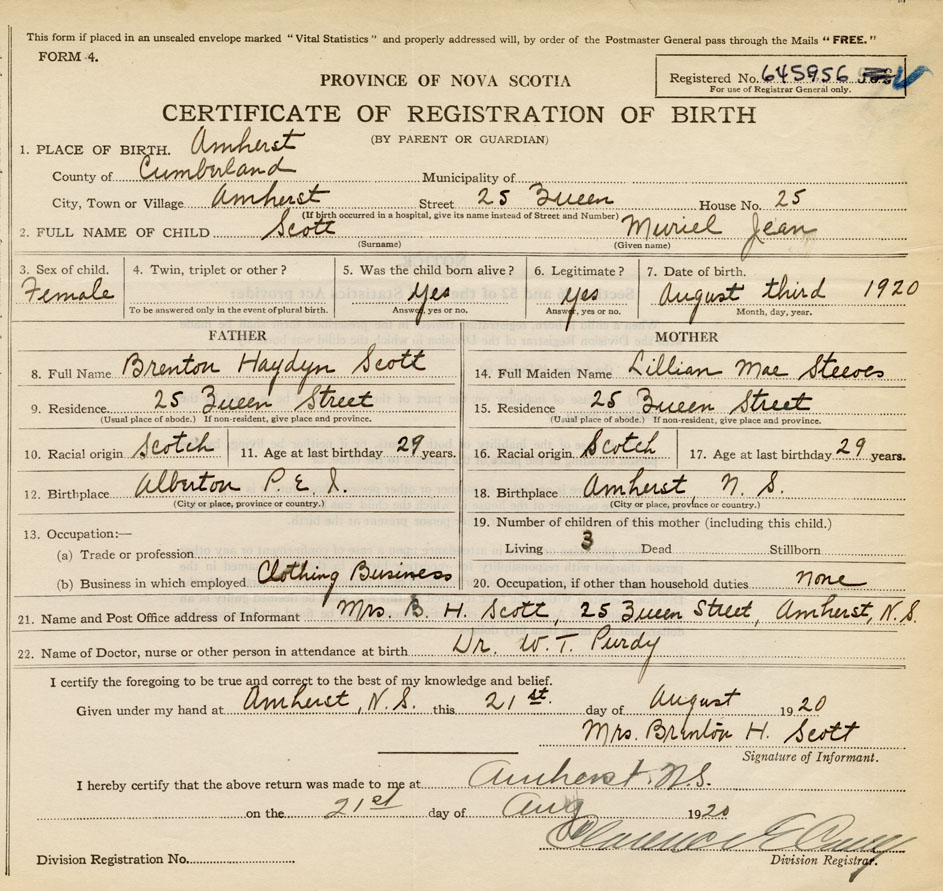 This form if placed in an unsealed envelope marked "Vital Statistics" and properly addressed will, by order of the Postmaster General pass through the Mails "FREE."
FORM 4.
PROVINCE OF NOVA SCOTIA
Registered No. 645956
For use of Registrar General only.
CERTIFICATE OF REGISTRATION OF BIRTH
(BY PARENT OR GUARDIAN)
1. PLACE OF BIRTH. Amherst
County of Cumberland Municipality of
City, Town or Village Amherst Street 25 Queen House No. 25
(If birth occurred in a hospital, give its name instead of Street and Number)
2. FULL NAME OF CHILD Scott Muriel Jean
(Surname) (Given name)
3. Sex of child. 4. Twin, triplet or other? 5. Was the child born alive? 6. Legitimate? 7. Date of birth.
Female Yes Yes August third 1920
To be answered only in the event of plural birth. Answer, yes or no. Answer, yes or no. Month, day, year.
FATHER MOTHER
8. Full Name Brenton Haydyn Scott 14. Full Maiden Name Lillian Mae Steeves
9. Residence 25 Queen Street 15. Residence 25 Queen Street
(Usual place of abode.) If non-resident, give place and province. (Usual place of abode.) If non-resident, give place and province.
10. Racial origin Scotch 11. Age at last birthday 29 years. 16. Racial origin Scotch 17. Age at last birthday 29 years.
12. Birthplace Alberton P. E. I. 18. Birthplace Amherst, N. S.
(City or place, province or country.) (City or place, province or country.)
13. Occupation:— 19. Number of children of this mother (including this child.)
(a) Trade or profession Living 3 Dead Stillborn
(b) Business in which employed Clothing Business 20. Occupation, if other than household duties none
21. Name and Post Office address of Informant Mrs. B. H. Scott, 25 Queen Street, Amherst, N.S.
22. Name of Doctor, nurse or other person in attendance at birth Dr. W. T. Purdy
I certify the foregoing to be true and correct to the best of my knowledge and belief.
Given under my hand at Amherst, N.S. this 21st. day of August 1920
Mrs. Brenton H. Scott
Signature of Informant.
I hereby certify that the above return was made to me at Amherst. N.S.
on the 21st day of Aug 1920
Clarence E
Division Registration No. Division Registrar.